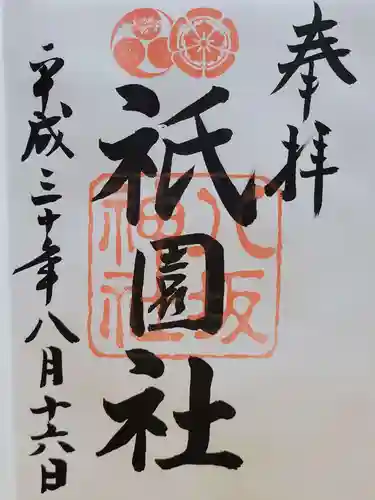 奉拝
祇園社
八坂神社
平成三十年八月十六日